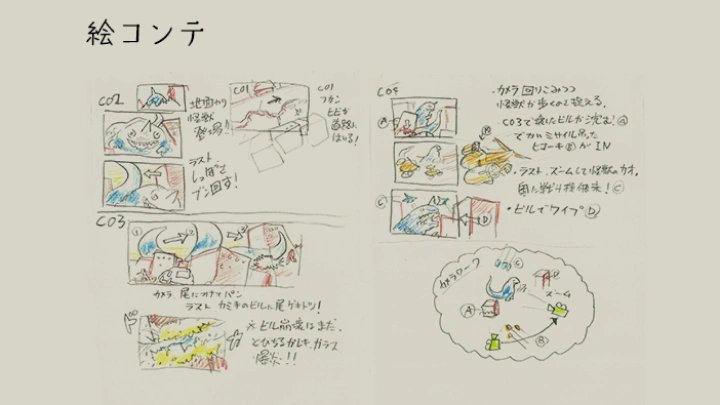 絵コンテ
C02
地面から
怪獣
登場!!
ラスト
しっぽを
ブン回す!
C01
C01
フカン
ヒビが
道路に
はいる!
C03
①
カメラ 尾につけてパン
ラスト カミ手のビルに尾
※ビル崩壊はまだ。
ガラス
爆発!!
C04
・カメラ回りこみつつ
怪獣が歩くのを捉える。
C03で壊したビルが沈む! Ⓐ
でかいミサイル吊った
ヒコーキⒷがIN
・ラスト、ズームして怪獣のカオ。
Ⓒ
・ビルでワイプ Ⓓ
Ⓐ
Ⓑ
Ⓒ
Ⓓ
カメラワーク
Ⓒ
Ⓓ
ズーム
Ⓐ
Ⓑ